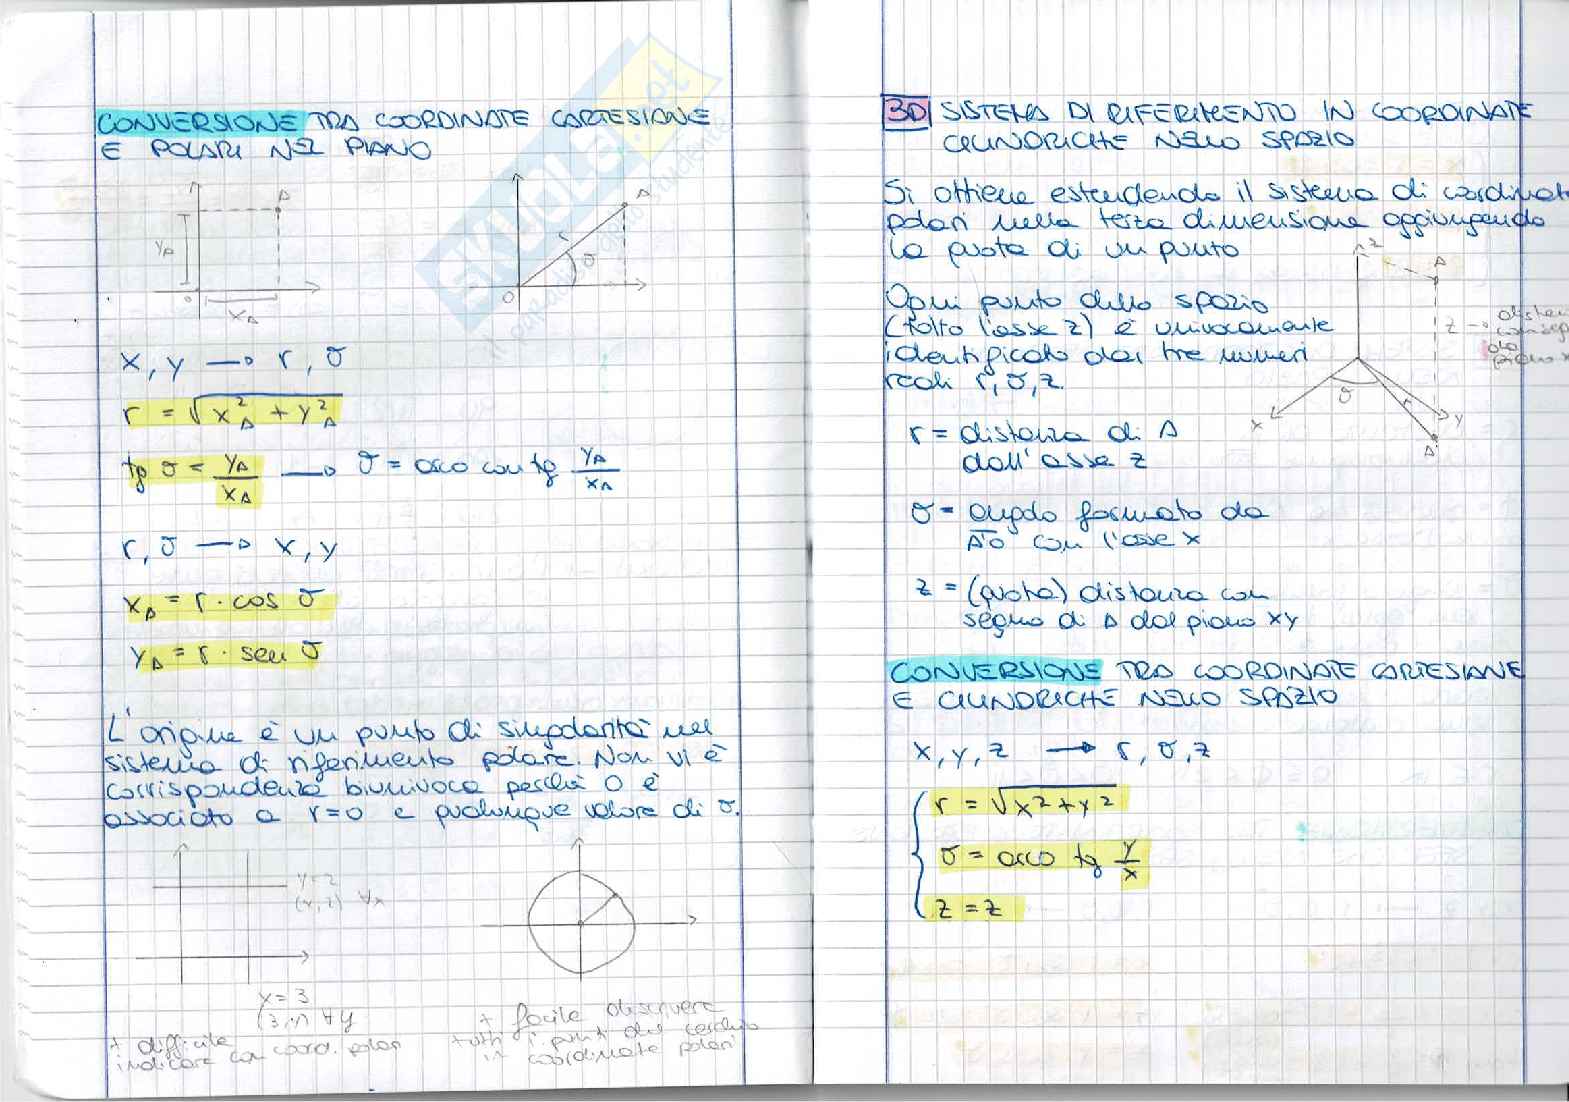 CONVERSIONE TRA COORDINATE CARTESIANE
E POLARI NEL PIANO
A
YA
O
XA
A
r
σ
O
x, y → r, σ
r = √(x²A + y²A)
tg σ = yA/xA → σ = arco con tg yA/xA
r, σ → x, y
xA = r · cos σ
yA = r · sen σ
L'origine è un punto di singolarità nel
sistema di riferimento polare. Non vi è
corrispondenza biunivoca perché O è
associato a r=0 e qualunque valore di σ.
y=2
(x,2) ∀x
x=3
(3,y) ∀y
+ difficile
indicare con coord. polari
+ facile descrivere
tutti i punti del cerchio
in coordinate polari
SKUOLA.net
3D SISTEMA DI RIFERIMENTO IN COORDINATE
CILINDRICHE NELLO SPAZIO
Si ottiene estendendo il sistema di coordinat
polari nella terza dimensione aggiungendo
la quota di un punto
Ogni punto dello spazio
(tolto l'asse z) è univocamente
identificato dai tre numeri
reali r, σ, z.
z
A
z → distan
con seg
dal
piano x
σ
r
x
y
A'
r = distanza di A
dall'asse z
σ = angolo formato da
A̅O̅ con l'asse x
z = (quota) distanza con
segno di A dal piano xy
CONVERSIONE TRA COORDINATE CARTESIANE
E CILINDRICHE NELLO SPAZIO
x, y, z → r, σ, z
r = √(x² + y²)
σ = arco tg y/x
z = z